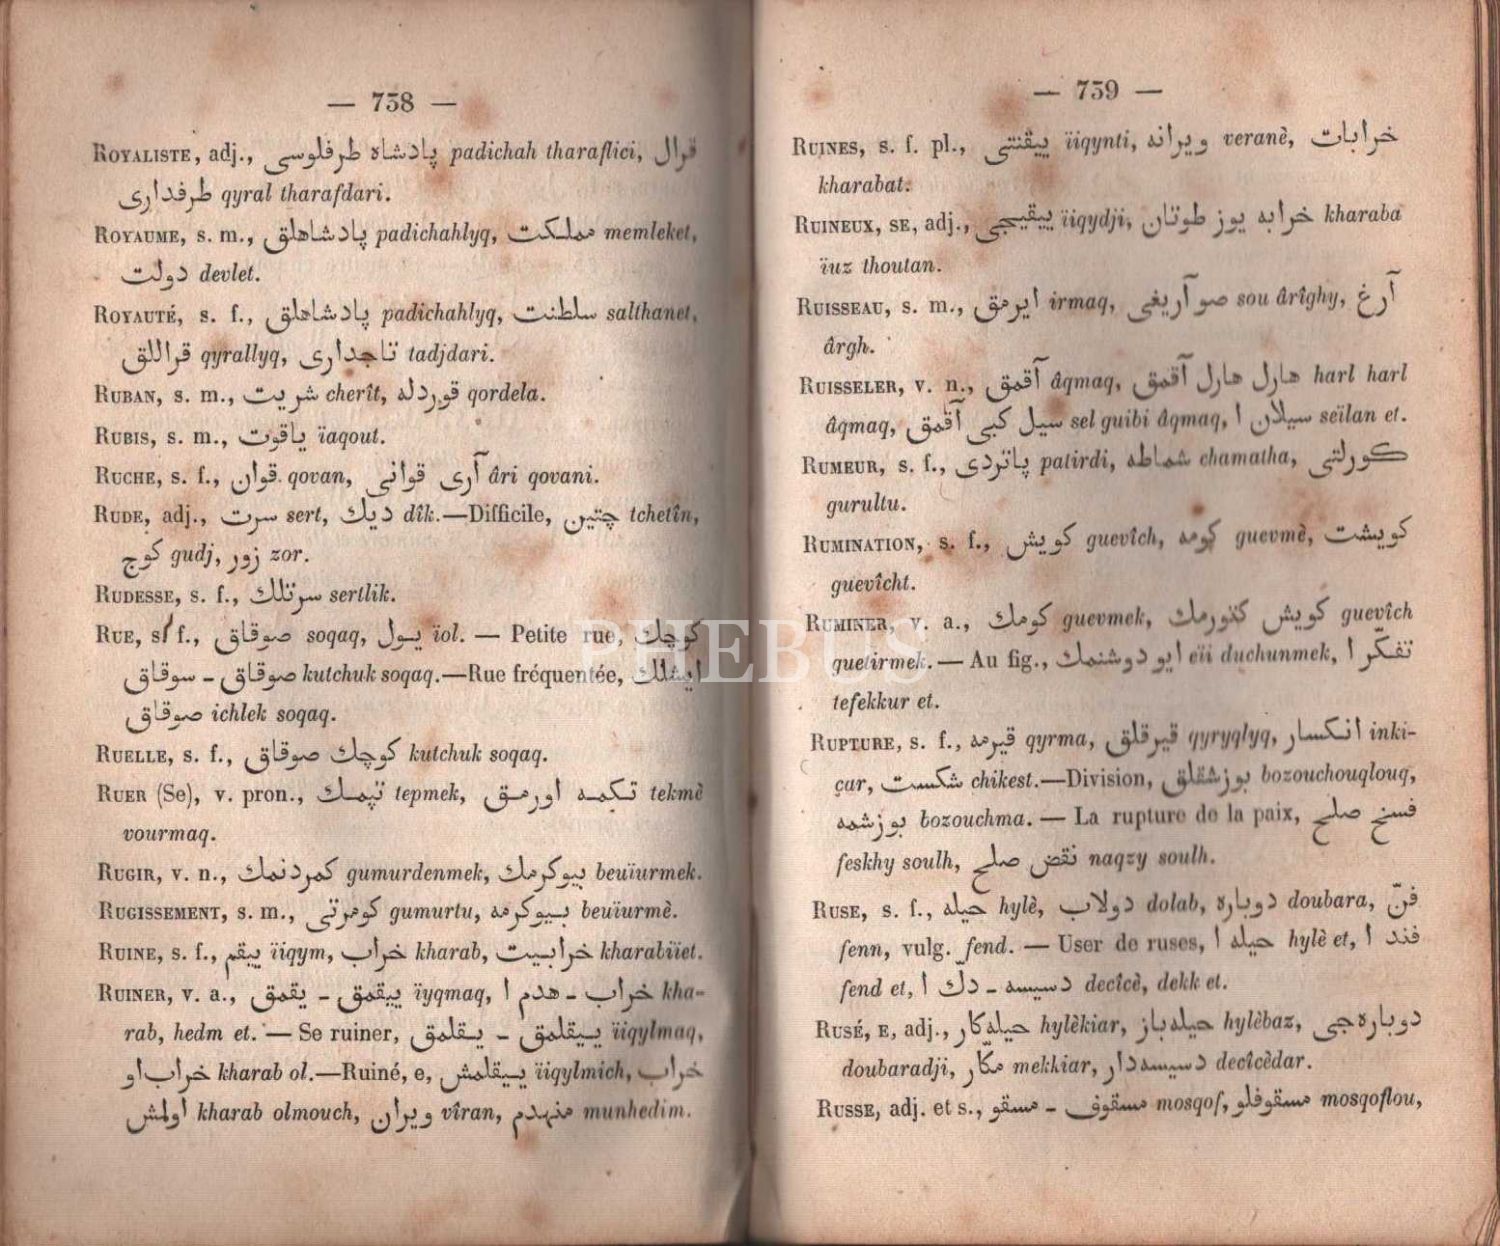 — 738 —
ROYALISTE, adj., پادشاه طرفلوسی padichah tharaflici, قرال
طرفداری qyral tharafdari.
ROYAUME, s. m., پادشاهلق padichahlyq, مملکت memleket,
دولت devlet.
ROYAUTÉ, s. f., پادشاهلق padichahlyq, سلطنت salthanet,
قراللق qyrallyq, تاجداری tadjdari.
RUBAN, s. m., شریت cherît, قوردله qordela.
RUBIS, s. m., یاقوت ïaqout.
RUCHE, s. f., قوان qovan, آری قوانی âri qovani.
RUDE, adj., سرت sert, دیك dîk.—Difficile, چتین tchetîn,
کوج gudj, زور zor.
RUDESSE, s. f., سرتلك sertlik.
RUE, s. f., صوقاق soqaq, یول ïol. — Petite rue, کوچك
صوقاق - سوقاق kutchuk soqaq.—Rue fréquentée, ایشلك
صوقاق ichlek soqaq.
RUELLE, s. f., کوچك صوقاق kutchuk soqaq.
RUER (Se), v. pron., تپمك tepmek, تکمه اورمق tekmè
vourmaq.
RUGIR, v. n., کمردنمك gumurdenmek, بیوکرمك beuïurmek.
RUGISSEMENT, s. m., کومرتی gumurtu, بیوکرمه beuïurmè.
RUINE, s. f., ییقم ïiqym, خراب kharab, خرابیت kharabiïet.
RUINER, v. a., ییقمق - یقمق ïyqmaq, خراب - هدم ا kha-
rab, hedm et. — Se ruiner, ییقلمق - یقلمق ïiqylmaq,
خراب او kharab ol.—Ruiné, e, ییقلمش ïiqylmich, خراب
اولمش kharab olmouch, ویران vîran, منهدم munhedim.
PHEBUS
— 739 —
RUINES, s. f. pl., ییقنتی ïiqynti, ویرانه veranè, خرابات
kharabat.
RUINEUX, SE, adj., ییقیجی ïiqydji, خرابه یوز طوتان kharaba
ïuz thoutan.
RUISSEAU, s. m., ایرمق irmaq, صو آریغی sou ârîghy, آرغ
ârgh.
RUISSELER, v. n., آقمق âqmaq, هارل هارل آقمق harl harl
âqmaq, سیل کبی آقمق sel guibi âqmaq, سیلان ا seïlan et.
RUMEUR, s. f., پاتردی patirdi, شماطه chamatha, کورلتی
gurultu.
RUMINATION, s. f., کویش guevîch, کومه guevmè, کویشت
guevîcht.
RUMINER, v. a., کومك guevmek, کویش کتورمك guevîch
guetirmek. — Au fig., ایو دوشنمك eïi duchunmek, تفکّر ا
tefekkur et.
RUPTURE, s. f., قیرمه qyrma, قیرقلق qyryqlyq, انکسار inki-
çar, شکست chikest.—Division, بوزشقلق bozouchouqlouq,
بوزشمه bozouchma. — La rupture de la paix, فسخ صلح
feskhy soulh, نقض صلح naqzy soulh.
RUSE, s. f., حیله hylè, دولاب dolab, دوباره doubara, فنّ
fenn, vulg. fend. — User de ruses, حیله ا hylè et, فند ا
fend et, دسیسه - دك ا decîcè, dekk et.
RUSÉ, E, adj., حیله‌کار hylèkiar, حیله‌باز hylèbaz, دوباره‌جی
doubaradji, مکّار mekkiar, دسیسه‌دار decîcèdar.
RUSSE, adj. et s., مسقوف - مسقو mosqof, مسقوفلو mosqoflou,